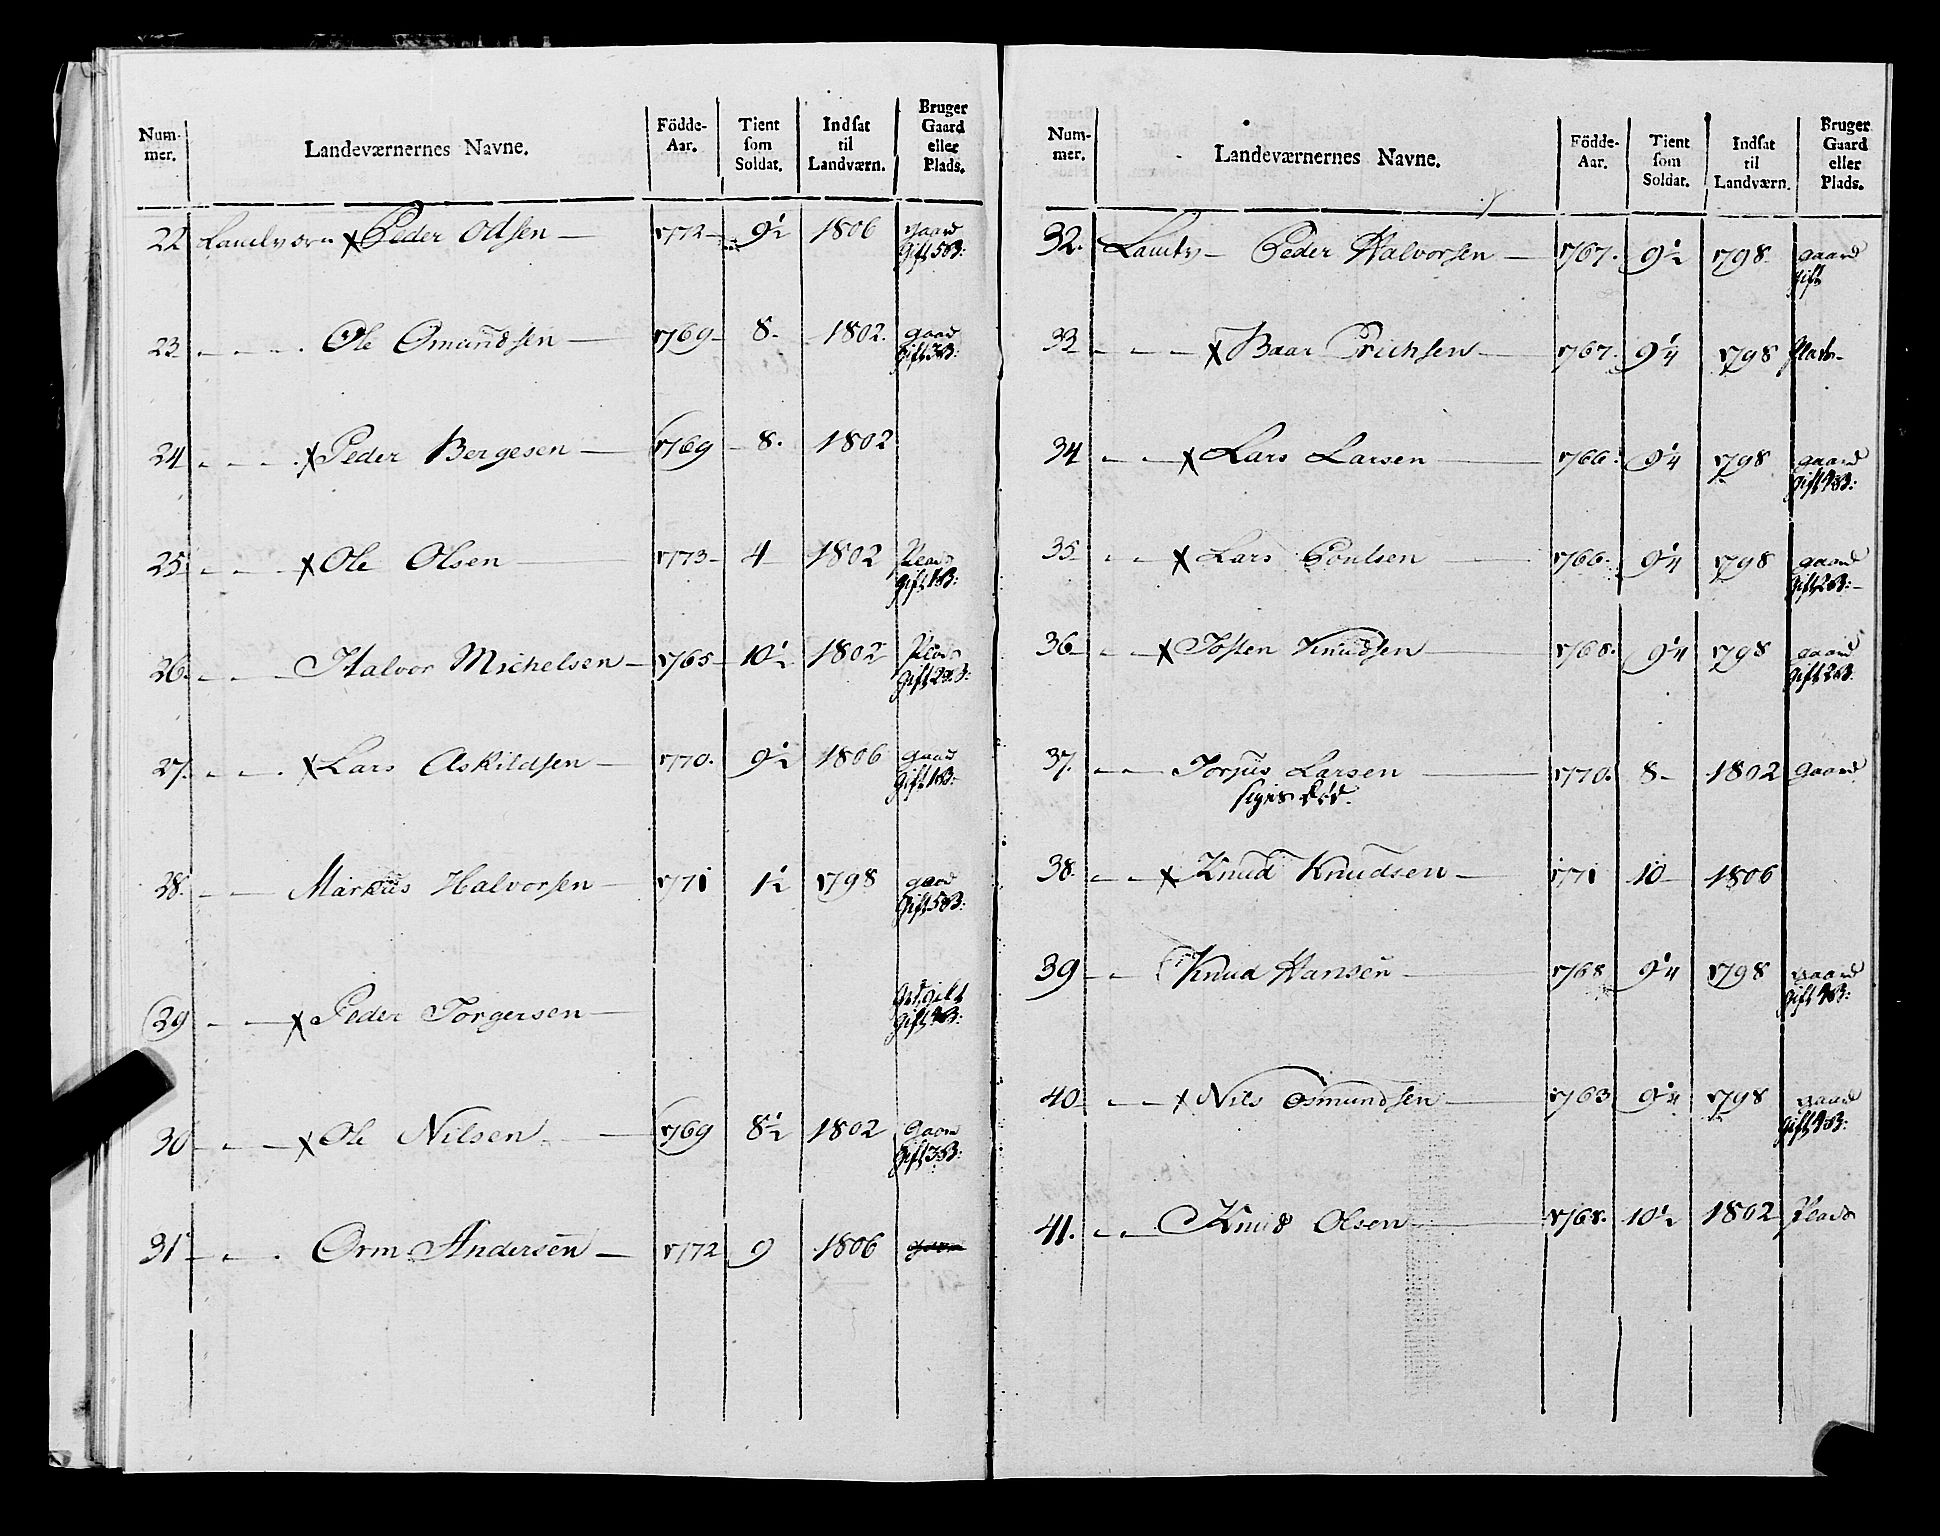 Num-
mer.
Landeværnernes Navne.
Födde-
Aar.
Tient
som
Soldat.
Indsat
til
Landværn.
Bruger
Gaard
eller
Plads.
22 Landværn x Peder Odsen — 1772 9½ 1806 gaard
Gift 5 B:
23 Ole Omundsen — 1769 8 1802 gaard
Gift 3 B:
24 x Peder Bergesen — 1769 8 1802
25 x Ole Olsen — 1773 4 1802 Plads
Gift 1 B:
26 Halvor Michelsen — 1765 10½ 1802 Plads
Gift 2 B:
27 x Lars Askildsen — 1770 9½ 1806 gaard
Gift 1 B:
28 Markus Halvorsen — 1771 1½ 1798 gaard
Gift 5 B:
29 x Peder Torgersen —
Gift 4 B:
30 x Ole Nilsen — 1769 8½ 1802 Gaard
Gift 3 B:
31 Orm Andersen — 1772 9 1806
Num-
mer.
Landeværnernes Navne.
Födde-
Aar.
Tient
som
Soldat.
Indsat
til
Landværn.
Bruger
Gaard
eller
Plads.
32. Landv — Peder Halvorsen — 1767. 9½ 1798 gaard
Gift
33 x Baar Erichsen — 1767. 9¼ 1798 Plads
34 x Lars Larsen — 1766. 9¼ 1798 gaard
Gift 4 B:
35 x Lars Poulsen — 1766. 9¼ 1798 gaard
Gift 2 B:
36 x Tosten Knudsen — 1768. 9¼ 1798 gaard
Gift 2 B:
37. Torjus Larsen — 1770. 8 1802 Gaard
siges död.
38. x Knud Knudsen — 1771 10 1806
39 Knud Hansen — 1768 9¼ 1798 gaard
Gift 4 B:
40 x Nils Osmundsen — 1763 9¼ 1798 gaard
Gift 4 B:
41. Knud Olsen — 1768. 10½ 1802 Plads